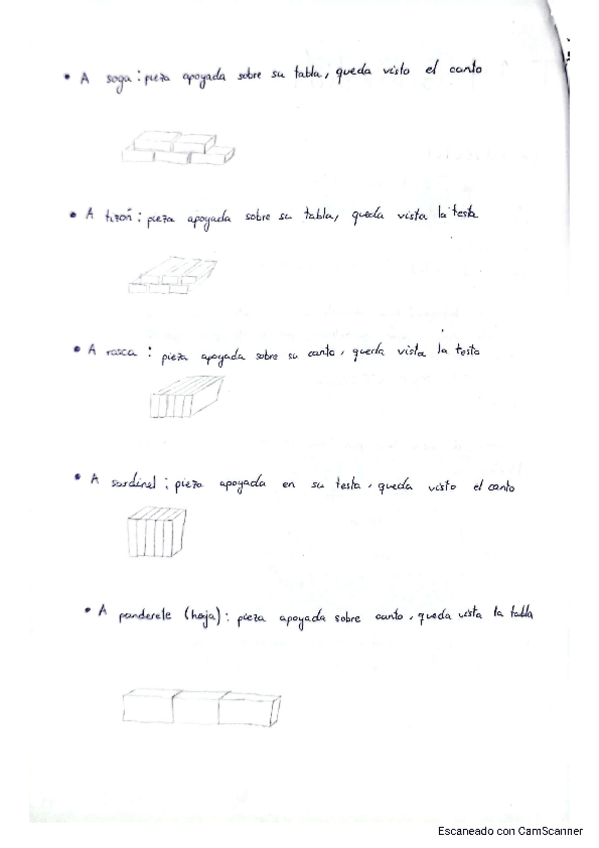 • A soga : pieza apoyada sobre su tabla, queda visto el canto
• A tizón : pieza apoyada sobre su tabla, queda vista la testa
• A rasca : pieza apoyada sobre su canto, queda vista la testa
• A sardinel : pieza apoyada en su testa, queda visto el canto
• A panderete (hoja) : pieza apoyada sobre canto, queda vista la tabla
Escaneado con CamScanner